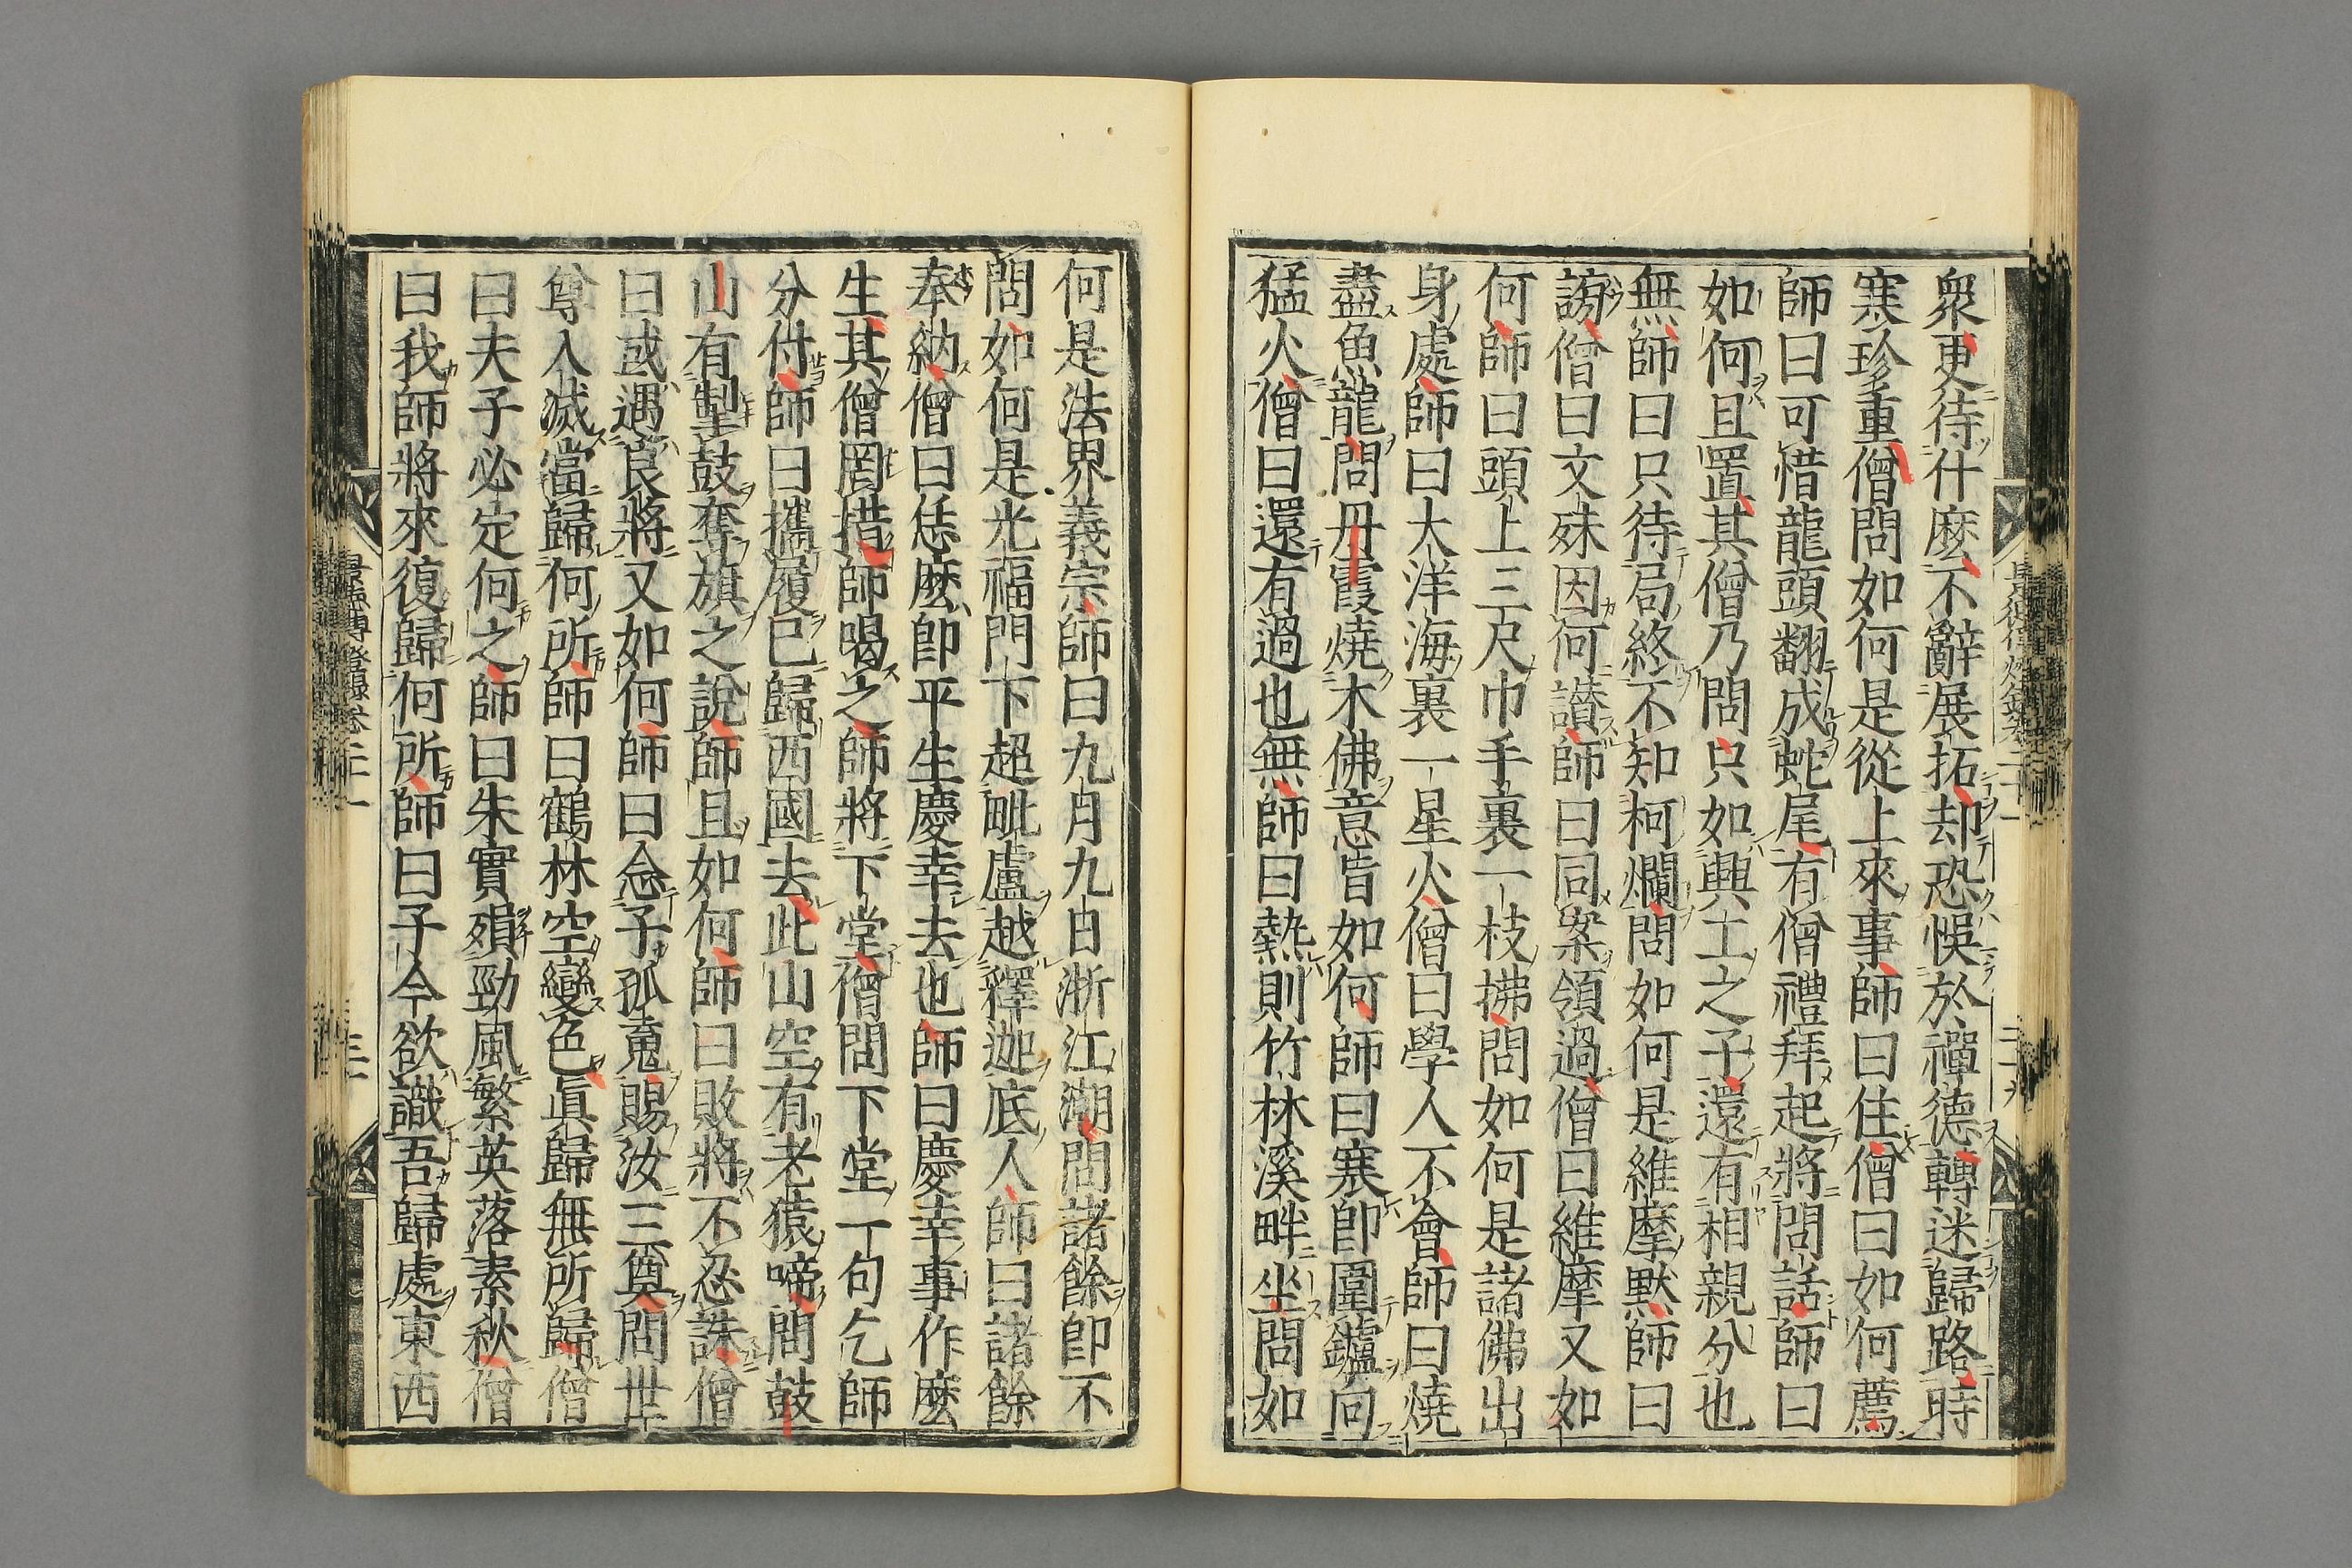 衆更待什麽不辭展拓却恐悞於禪德轉迷歸路時
寒珍重僧問如何是從上來事師曰住僧曰如何薦
師曰可惜龍頭翻成蛇尾有僧禮拜起將問話師曰
如何且置其僧乃問只如興土之子還有相親分也
無師曰只待局終不知柯爛問如何是維摩默師曰
謗僧曰文殊因何讃師曰同案領過僧曰維摩又如
何師曰頭上三尺巾手裏一枝拂問如何是諸佛出
身處師曰大洋海裏一星火僧曰學人不會師曰燒
盡魚龍問丹霞燒木佛意旨如何師曰寒卽圍鑪向
猛火僧曰還有過也無師曰熱則竹林溪畔坐問如
何是法界義宗師曰九月九日浙江潮問諸餘卽不
問如何是光福門下超毗盧越釋迦底人師曰諸餘
奉納僧曰恁麽卽平生慶幸去也師曰慶幸事作麽
生其僧罔措師喝之師將下堂僧問下堂一句乞師
分付師曰攜履已歸西國去此山空有老猿啼問鼓
山有掣鼓奪旗之說師且如何師曰敗將不忍誅僧
曰或遇良將又如何師曰念子孤䰟賜汝三奠問世
尊入滅當歸何所師曰鶴林空變色眞歸無所歸僧
曰夫子必定何之師曰朱實殞勁風繁英落素秋僧
曰我師將來復歸何所師曰子今欲識吾歸處東西
景德傳燈録卷二十一